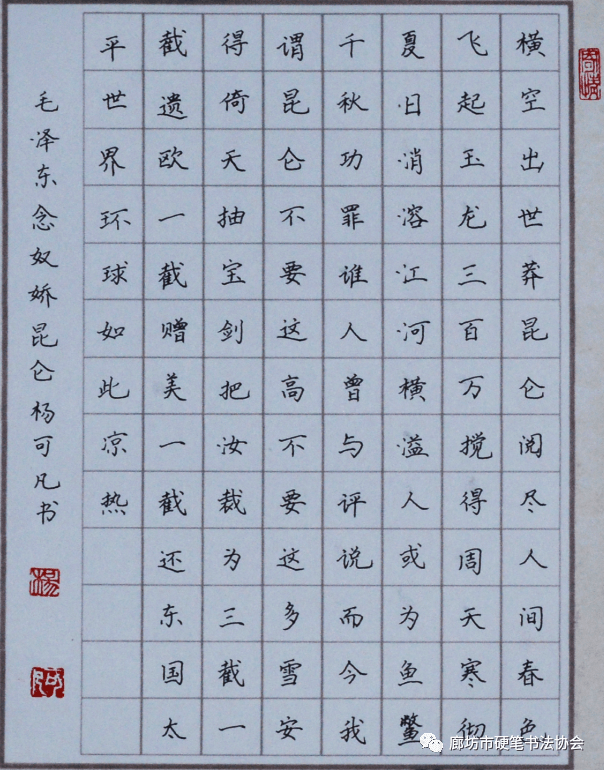 横空出世莽昆仑阅尽人间春色
飞起玉龙三百万搅得周天寒彻
夏日消溶江河横溢人或为鱼鳖
千秋功罪谁人曾与评说而今我
谓昆仑不要这高不要这多雪安
得倚天抽宝剑把汝裁为三截一
截遗欧一截赠美一截还东国太
平世界环球如此凉热
毛泽东念奴娇昆仑杨可凡书
廊坊市硬笔书法协会